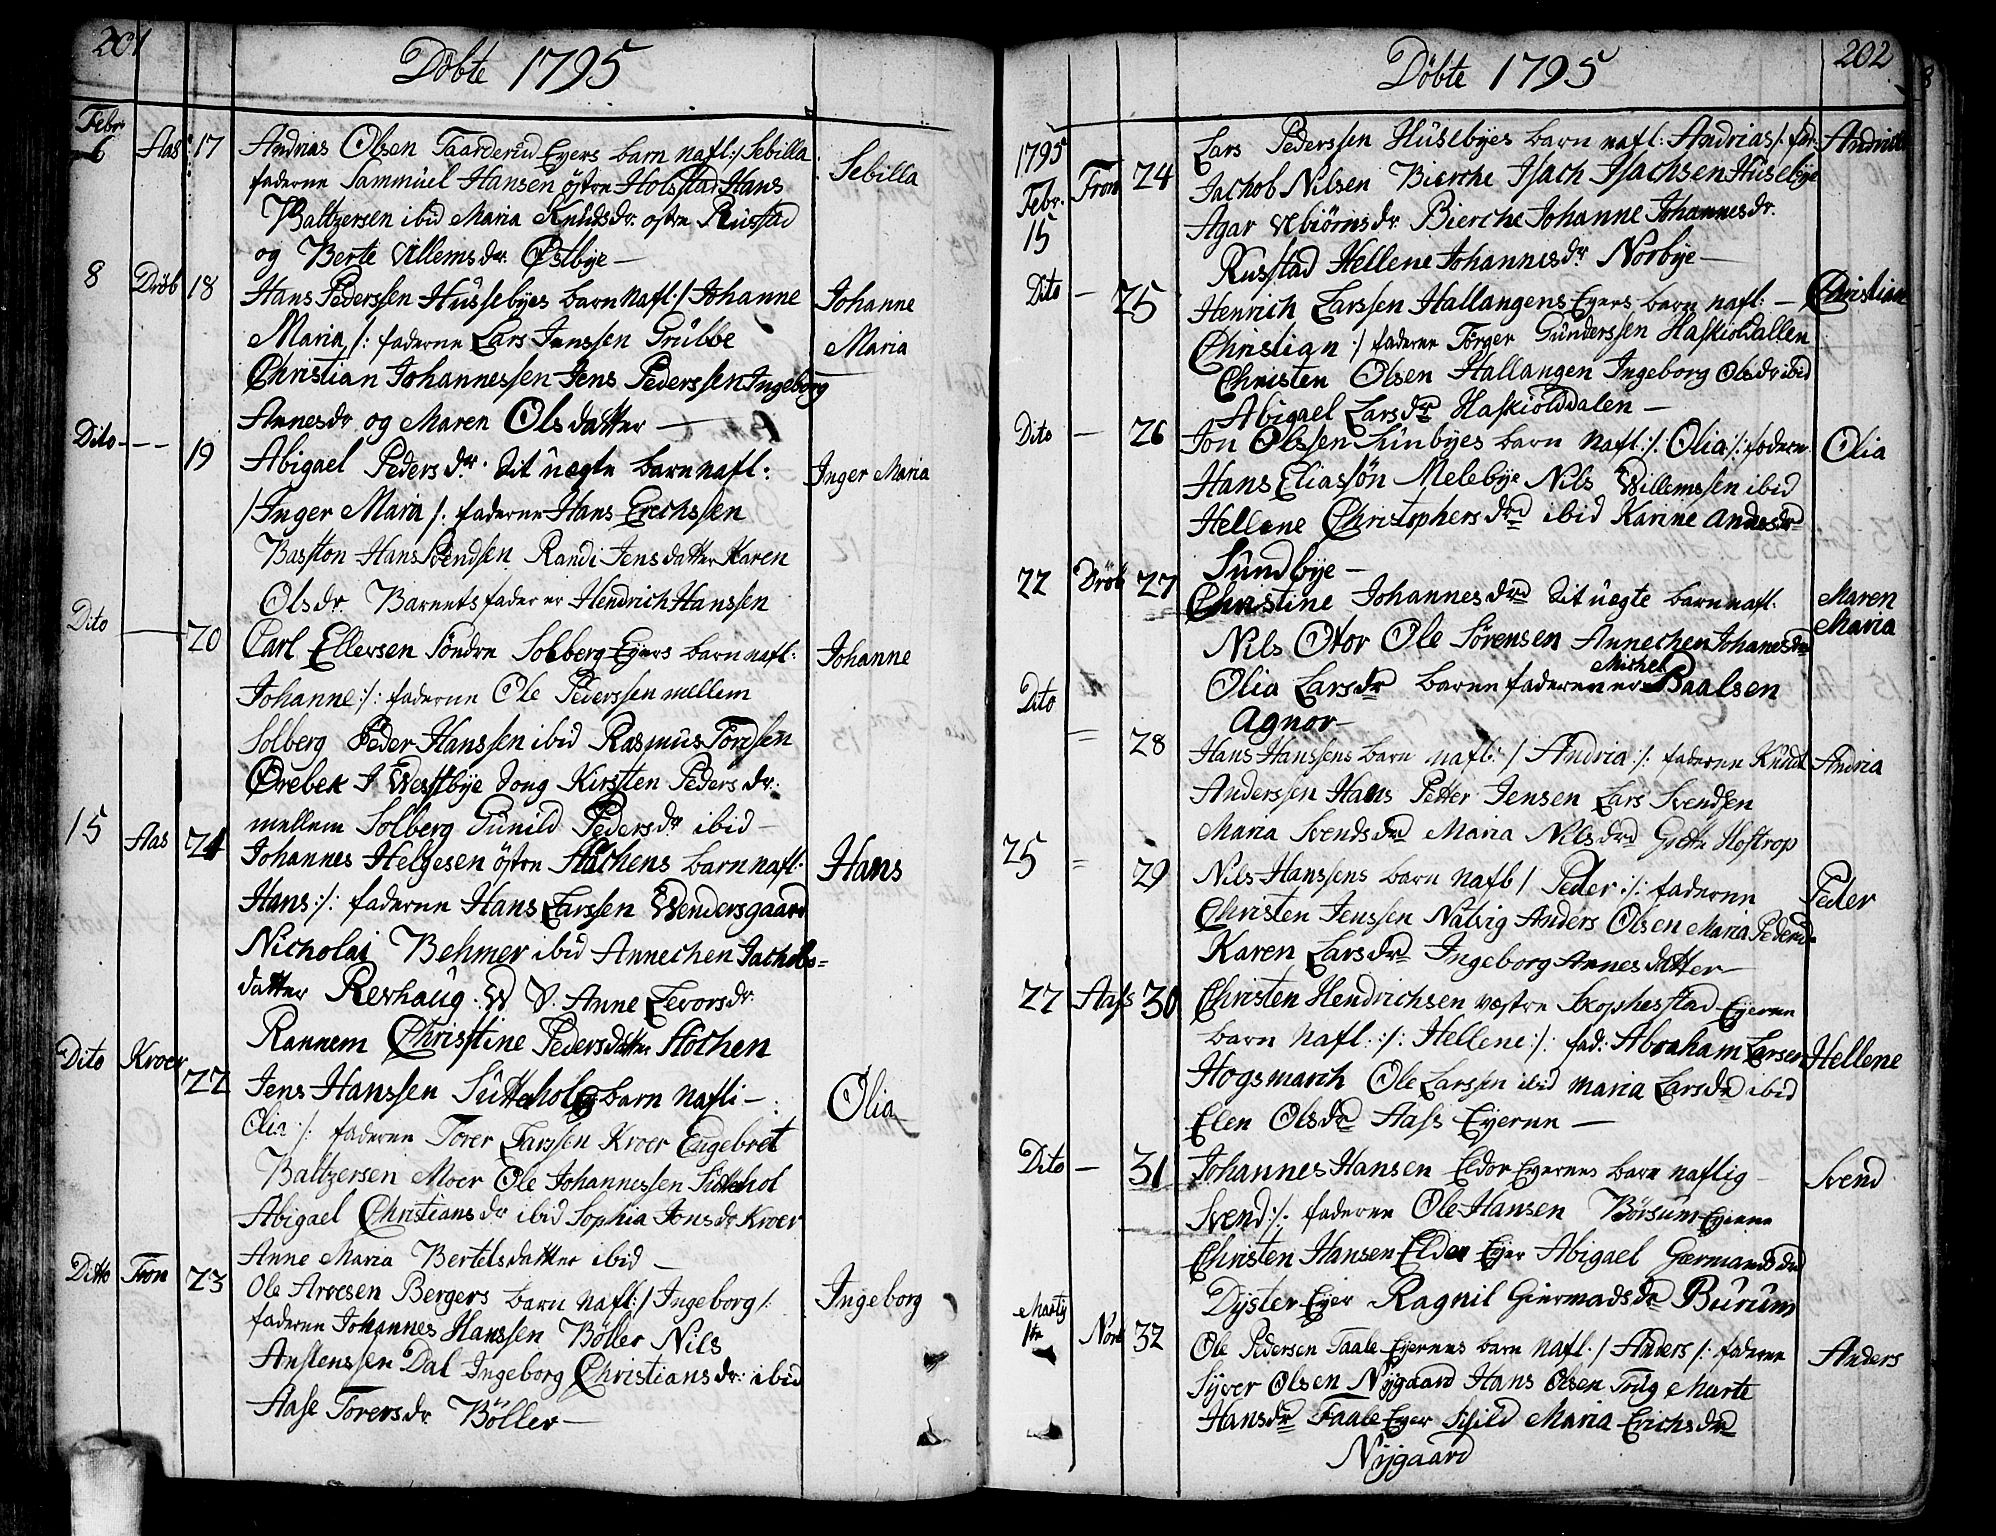 201
Döbte 1795
Febr.
6 Aas 17 Andrias Olsen Taarderud Eyers barn nafl:/ Sebilla
Sebilla
faderne Sammüel Hansen östre Holstad Hans
Baltzersen ibid Maria Knudsdr. östre Rustad
og Berte Villemsdr. Østbye —
8 Dröb 18 Hans Pederssen Hüssebÿes barn nafl:/ Johanne
Johanne
Maria /: faderne Lars Janssen Grübbe
Maria
Christian Johannessen Jens Pederssen Ingeborg
Annesdr og Maren Olsdatter —
Dito — — 19 Abigael Pedersdr. Sit uægte barn nafl:
Inger Maria
/ Inger Maria /: faderne Hans Erichssen
Basston Hans Svendsen Randi Jensdatter Karen
Olsdr. Barnets fader er Hendrich Hanssen
Dito — 20 Carl Ellevsen Söndre Solberg Eyers barn nafl:
Johanne
Johanne:/: faderne Ole Pederssen mellem
Solberg Peder Hanssen ibid Rasmus Toresen
Ørebek I Westbÿe Song Kirsten Pedersdr.
mellem Solberg Gunild Pedersdr ibid —
15 Aas 21 Johannes Helgesen östre Stöchens barn nafl:
Hans
Hans:/: faderne Hans Larssen Wendersgaard
Nicholai Behmer ibid Annechen Jachobs=
datter Revhaug. W V. Anne Levorsdr.
Rannem Christine Pedersdatter Stöchen
Dito Kroer 22 Jens Hanssen Sütteholg barn nafli —
Olia
Olia /: faderne Torer Larssen Kroer Engebret
Baltzersen Moer Ole Johannessen Sütteholt
Abigael Christiansdr ibid Sophia Jonsdr Kroer
Anne Maria Bertelsdatter ibid —
Ditto Fron 23 Ole Arvesen Bergers barn nafl:/ Ingeborg /:
Ingeborg
faderne Johannes Hanssen Böller Nils
Anstenssen Dal Ingeborg Christiansdr: ibid
Aase Torersdr Böller —
202
Döbte 1795
1795
Febr.
15 Fron 24 Lars Pederssen Hüsebÿes barn nafl: Andrias /: fad.
Andrias
Jachob Nilsen Bierche Isach Isachsen Hüsebÿe
Agar Abiörnsdr. Bierche Johanne Johannesdr.
Rustad Hellene Johannisdr Norbÿe —
Dito — 25 Henrich Larssen Hallangens Eyers barn nafl: —
Christian
Christian :/ faderne Törger Gunderssen Haskiolddallen
Christen Olsen Hallangen Ingeborg Olsdr ibid
Abigael Larsdr Haskiolddalen —
Dito — 26 Jon Olssen Sünbÿes barn nafl:/: Olia /: faderne
Olia
Hans Eliassön Melebÿe Nils Willemssen ibid
Hellene Christophersdr ibid Karine Andersdr
Sundbÿe —
22 Dröb 27 Christine Johannesdr Sit uægte barn nafl.
Maren
Maria
Nils Otor Ole Sörensen Annechen Johanesdr
Olia Larsdr barne faderen er Michel Baalsen
Agnor —
Dito = 28 Hans Hanssens barn nafl:/ Andria:/: faderne Knudt
Andria
Anderssen Hans Petter Jensen Lars Svendsen
Maria Svendsdr Maria Nilsdr Hoftrop
25 = 29 Nils Hanssens barn nafl / Peder:/: faderne
Peder
Christen Jenssen Natvig Anders Olsen Maria Pedersd=
Karen Larsdr Ingeborg Annesdatter —
27 Aass 30 Christen Hendrichsen væstre Skophesstad Eyerne
barn nafl::/: Hellene:/: fad: Abraham Larsen
Hellene
Hogsmarch Ole Larssen ibid Maria Larsdr ibid
Elen Olsdr Aass Eyerne —
Dito — 31 Johannes Hansen Eldor Eyernes barn naflig —
Svend
Svend:/: faderne Ole Hansen Börsum Eyerne
Christen Hansen Eldor Eyer Abigael Giermandsdr
Dyster Eyer Ragnil Giermadsdr Burum
Martij
1te Nord 32 Ole Pedersen Faale Eyernes barn nafl:/ Anders /: faderne
Anders
Syver Olsen Nÿgaard Hans Olsen Trüg Marte
Hansdr Faale Eyer Maria Erichsdr
Nÿgaard